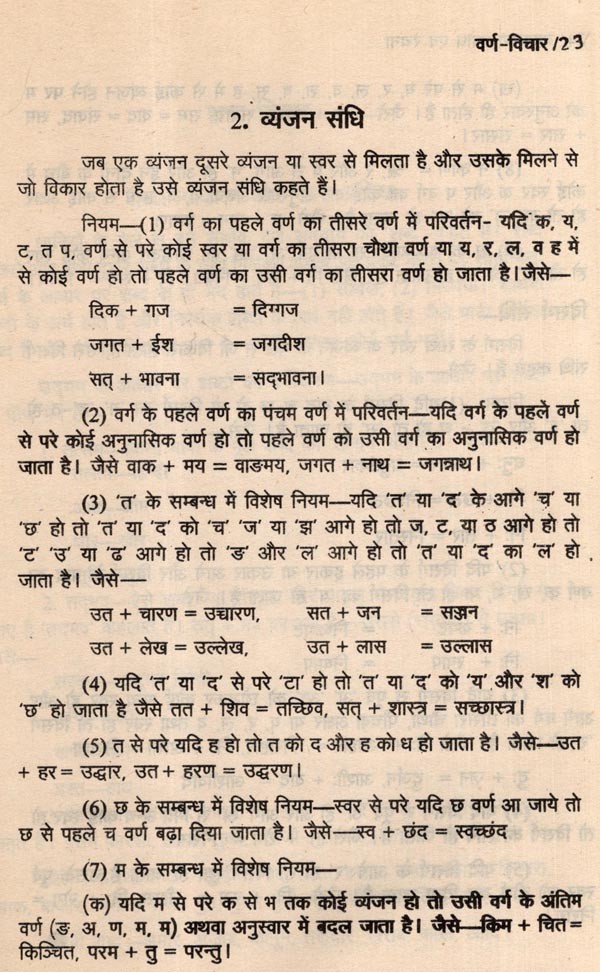 वर्ण-विचार/23
2. व्यंजन संधि
जब एक व्यंजन दूसरे व्यंजन या स्वर से मिलता है और उसके मिलने से
जो विकार होता है उसे व्यंजन संधि कहते हैं।
नियम—(1) वर्ग का पहले वर्ण का तीसरे वर्ण में परिवर्तन- यदि क, य,
ट, त प, वर्ण से परे कोई स्वर या वर्ग का तीसरा चौथा वर्ण या य, र, ल, व ह में
से कोई वर्ण हो तो पहले वर्ण का उसी वर्ग का तीसरा वर्ण हो जाता है। जैसे—
दिक + गज = दिग्गज
जगत + ईश = जगदीश
सत् + भावना = सद्भावना।
(2) वर्ग के पहले वर्ण का पंचम वर्ण में परिवर्तन—यदि वर्ग के पहले वर्ण
से परे कोई अनुनासिक वर्ण हो तो पहले वर्ण को उसी वर्ग का अनुनासिक वर्ण हो
जाता है। जैसे वाक + मय = वाङमय, जगत + नाथ = जगन्नाथ।
(3) ‘त’ के सम्बन्ध में विशेष नियम—यदि ‘त’ या ‘द’ के आगे ‘च’ या
‘छ’ हो तो ‘त’ या ‘द’ को ‘च’ ‘ज’ या ‘झ’ आगे हो तो ज, ट, या ठ आगे हो तो
‘ट’ ‘उ’ या ‘ढ’ आगे हो तो ‘ङ’ और ‘ल’ आगे हो तो ‘त’ या ‘द’ का ‘ल’ हो
जाता है। जैसे—
उत + चारण = उच्चारण, सत + जन = सज्जन
उत + लेख = उल्लेख, उत + लास = उल्लास
(4) यदि ‘त’ या ‘द’ से परे ‘टा’ हो तो ‘त’ या ‘द’ को ‘य’ और ‘श’ को
‘छ’ हो जाता है जैसे तत + शिव = तच्छिव, सत् + शास्त्र = सच्छास्त्र।
(5) त से परे यदि ह हो तो त को द और ह को ध हो जाता है। जैसे—उत
+ हर = उद्धार, उत + हरण = उद्धरण।
(6) छ के सम्बन्ध में विशेष नियम—स्वर से परे यदि छ वर्ण आ जाये तो
छ से पहले च वर्ण बढ़ा दिया जाता है। जैसे—स्व + छंद = स्वच्छंद
(7) म के सम्बन्ध में विशेष नियम—
(क) यदि म से परे क से भ तक कोई व्यंजन हो तो उसी वर्ग के अंतिम
वर्ण (ङ, अ, ण, म, म) अथवा अनुस्वार में बदल जाता है। जैसे—किम + चित=
किञ्चित, परम + तु = परन्तु।